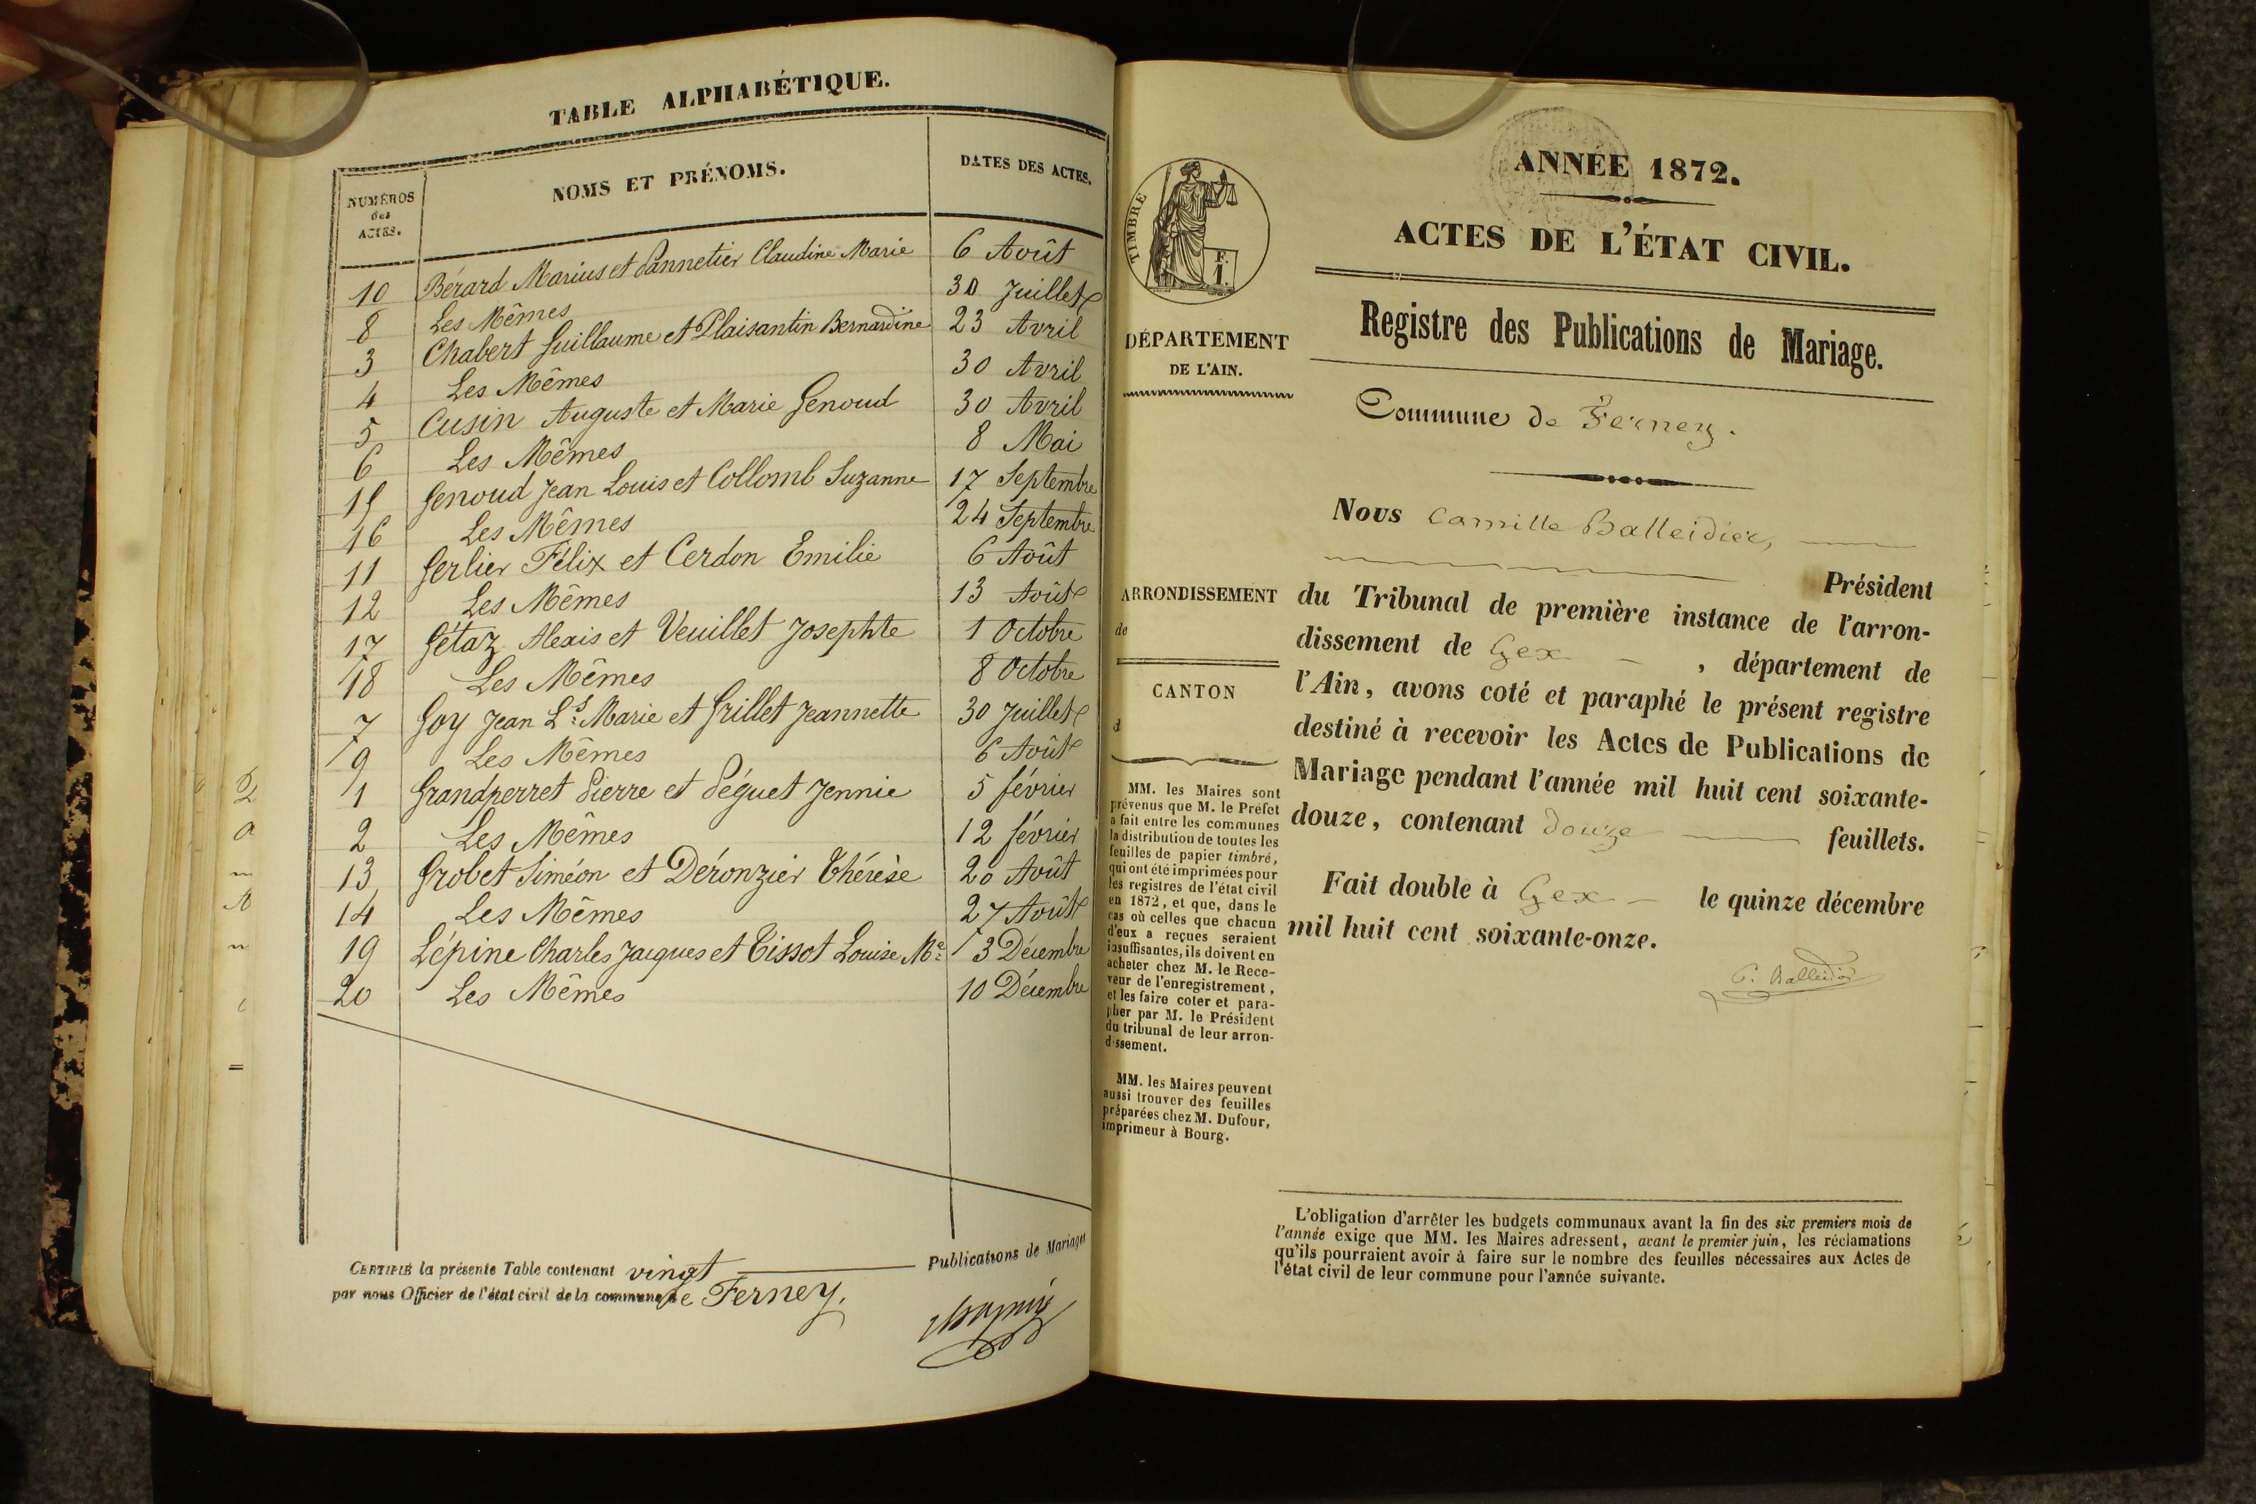 TABLE ALPHABÉTIQUE.
NUMÉROS
des
ACTES.
NOMS ET PRÉNOMS.
DATES DES ACTES.
10 Bérard Marius et Pannetier Claudine Marie 6 Août
8 Les Mêmes 30 Juillet
3 Chabert Guillaume et Plaisantin Bernardine 23 Avril
4 Les Mêmes 30 Avril
5 Cusin Auguste et Marie Genoud 30 Avril
6 Les Mêmes 8 Mai
15 Genoud Jean Louis et Collomb Suzanne 17 Septembre
16 Les Mêmes 24 Septembre
11 Gerlier Félix et Cerdon Emilie 6 Août
12 Les Mêmes 13 Août
17 Gétaz Alexis et Veuillet Josephte 1 Octobre
18 Les Mêmes 8 Octobre
7 Goy Jean Ls Marie et Grillet Jeannette 30 Juillet
9 Les Mêmes 6 Août
1 Grandperret Pierre et Péguet Jennie 5 février
2 Les Mêmes 12 février
13 Grobet Siméon et Déronzier Thérèse 20 Août
14 Les Mêmes 27 Août
19 Lépine Charles Jacques et Tissot Louise Me 3 Décembre
20 Les Mêmes 10 Décembre
CERTIFIÉ la présente Table contenant vingt Publications de Mariages
par nous Officier de l'état civil de la commune de Ferney.
ANNÉE 1872.
ACTES DE L'ÉTAT CIVIL.
Registre des Publications de Mariage.
Commune de Ferney.
TIMBRE
F.
1.
DÉPARTEMENT
DE L'AIN.
ARRONDISSEMENT
de
CANTON
d
MM. les Maires sont
prévenus que M. le Préfet
a fait entre les communes
la distribution de toutes les
feuilles de papier timbré,
qui ont été imprimées pour
les registres de l'état civil
en 1872, et que, dans le
cas où celles que chacun
d'eux a reçues seraient
insuffisantes, ils doivent en
acheter chez M. le Rece-
veur de l'enregistrement,
et les faire coter et para-
pher par M. le Président
du tribunal de leur arron-
dissement.
MM. les Maires peuvent
aussi trouver des feuilles
préparées chez M. Dufour,
imprimeur à Bourg.
Nous Camille Balleidier,
Président
du Tribunal de première instance de l'arron-
dissement de Gex, département de
l'Ain, avons coté et paraphé le présent registre
destiné à recevoir les Actes de Publications de
Mariage pendant l'année mil huit cent soixante-
douze, contenant douze feuillets.
Fait double à Gex le quinze décembre
mil huit cent soixante-onze.
C. Balleidier
L'obligation d'arrêter les budgets communaux avant la fin des six premiers mois de
l'année exige que MM. les Maires adressent, avant le premier juin, les réclamations
qu'ils pourraient avoir à faire sur le nombre des feuilles nécessaires aux Actes de
l'état civil de leur commune pour l'année suivante.